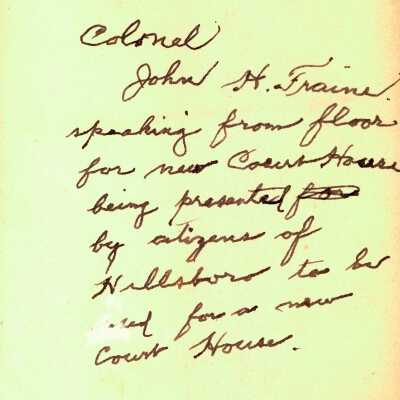 Colonel
John H. Fraine
speaking from floor
for new Court House
being presented for
by citizens of
Hillsboro to be
used for a new
Court House.